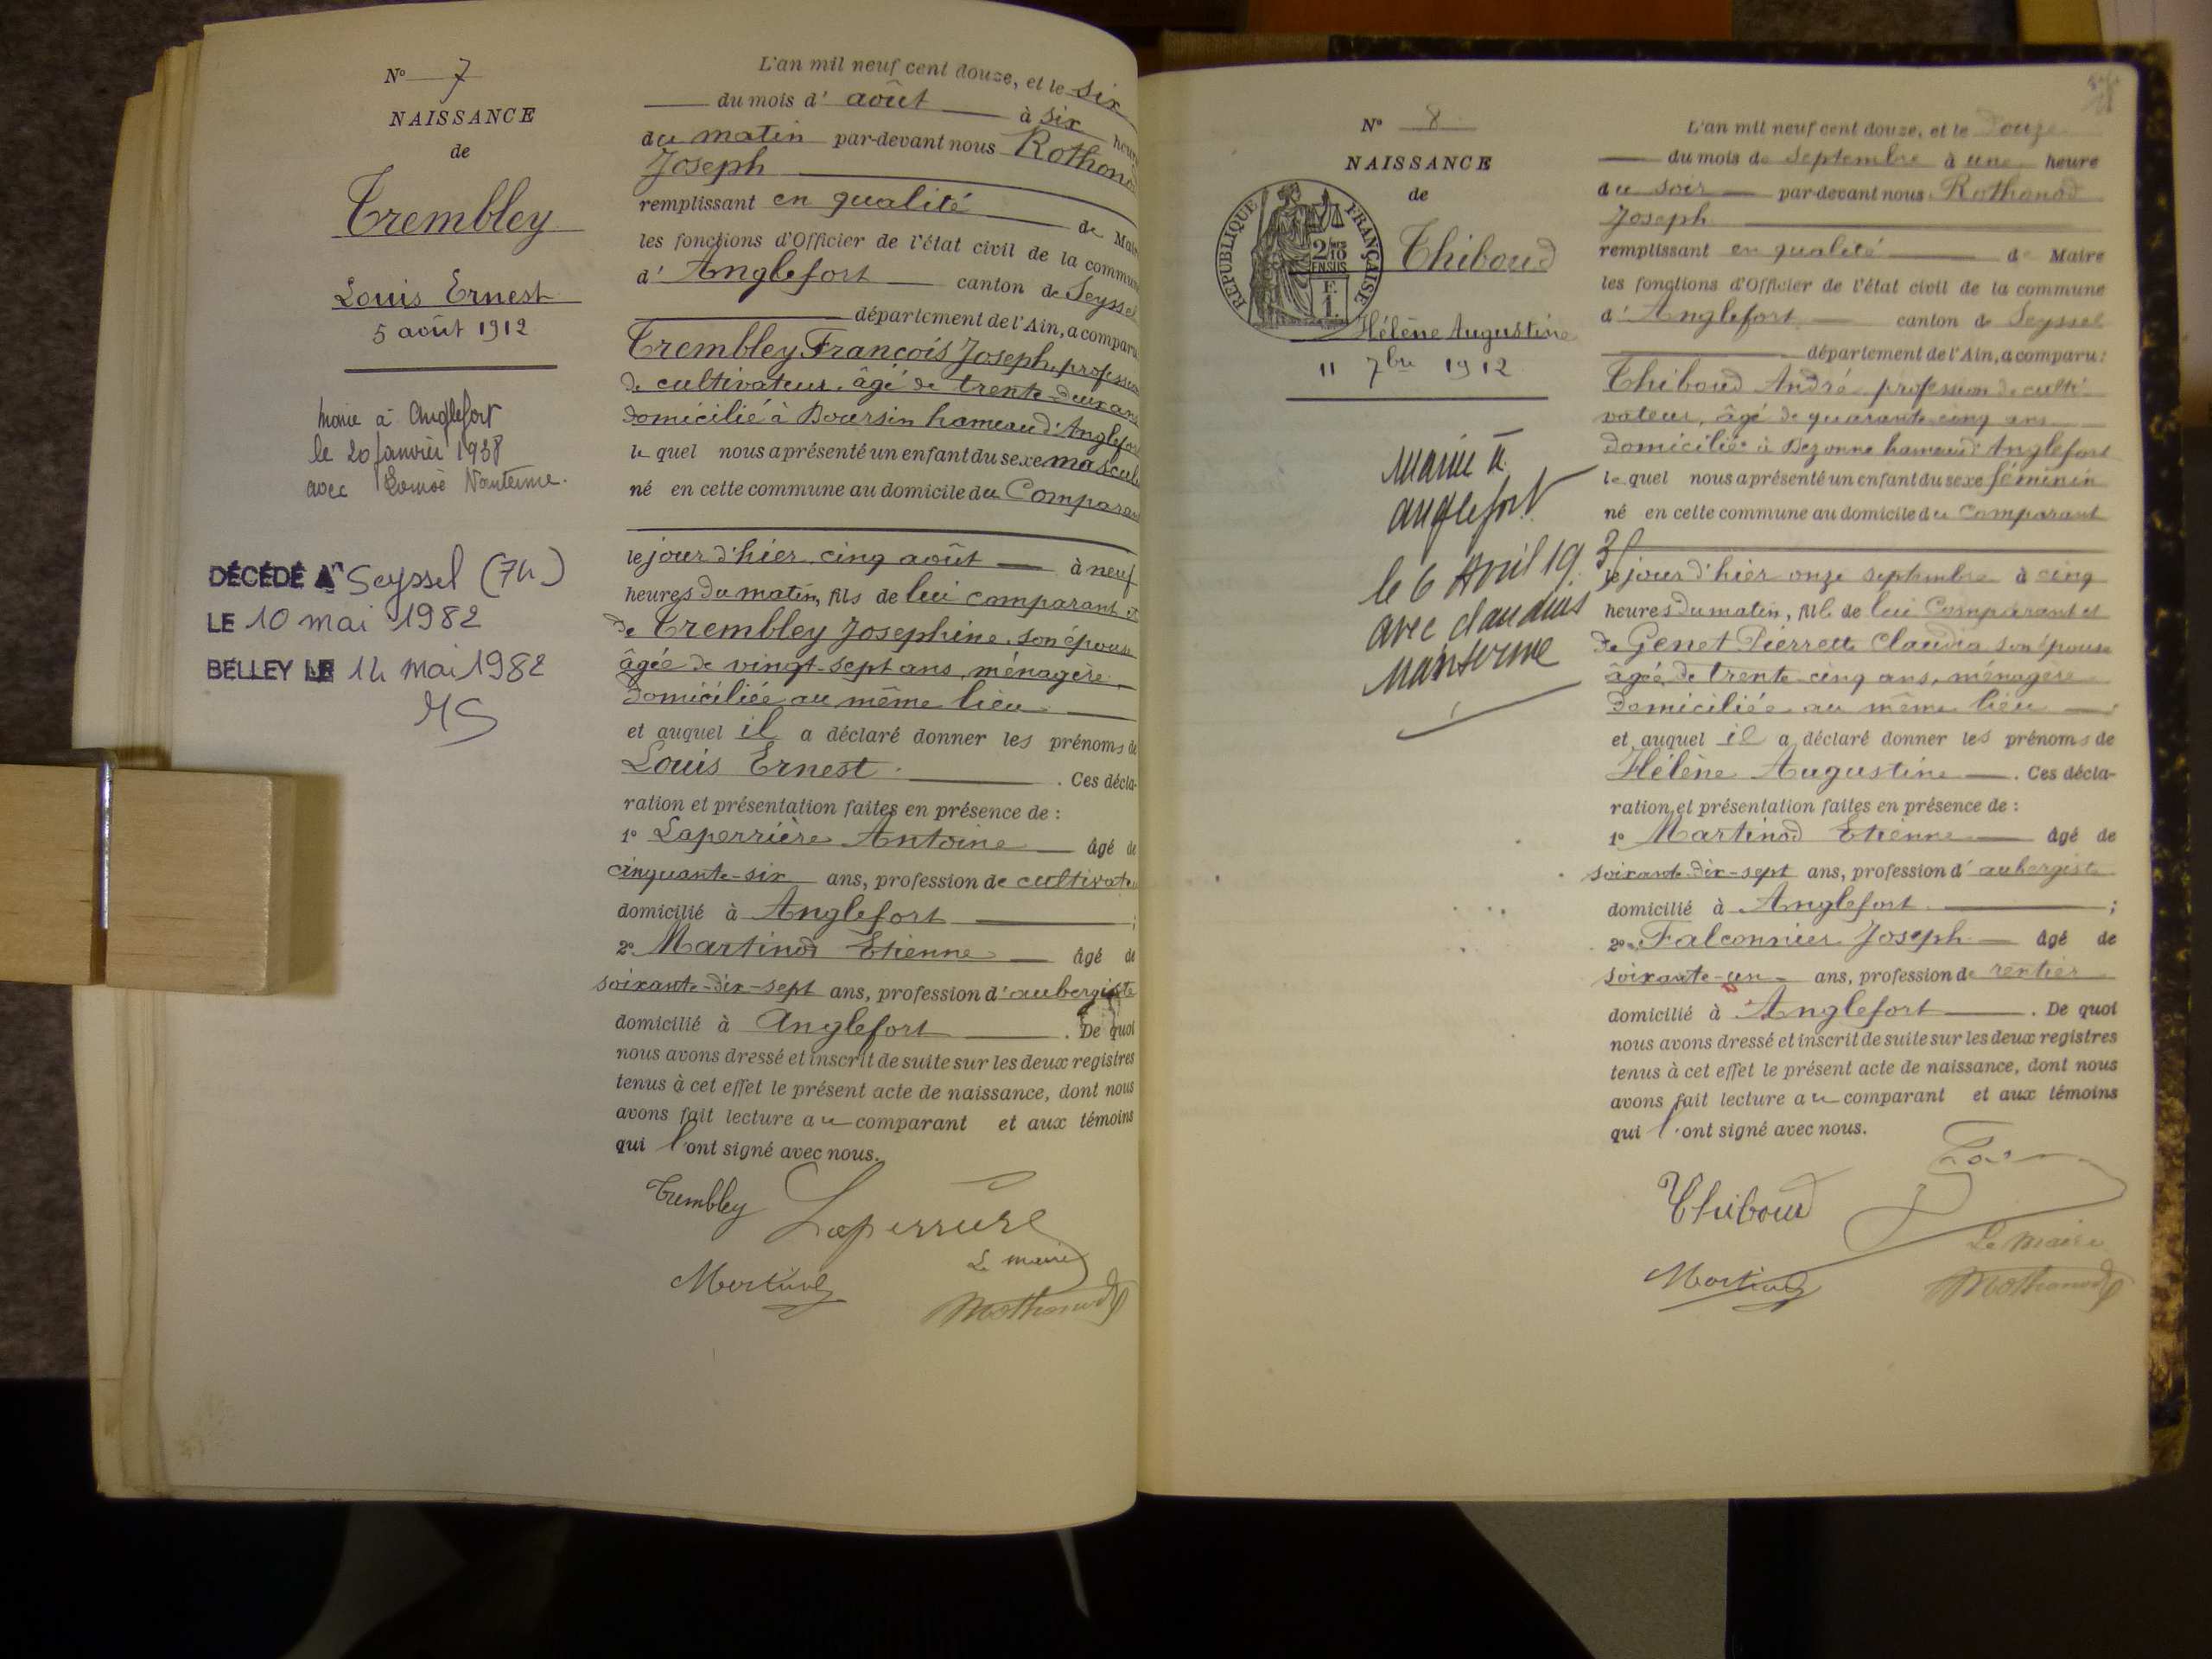 N° 7
NAISSANCE
de
Trembley
Louis Ernest
5 août 1912
Marié à Anglefort
le 20 Janvier 1938
avec Louise Nanterme.
DÉCÉDÉ A Seyssel (74)
LE 10 mai 1982
BELLEY LE 14 mai 1982
L'an mil neuf cent douze, et le six
du mois d' août à six heure
du matin par-devant nous Rothonod
Joseph
remplissant en qualité de Maire
les fonctions d'Officier de l'état civil de la commune
d' Anglefort canton de Seyssel
département de l'Ain, a comparu
Trembley François Joseph, profession
de cultivateur, âgé de trente-deux ans
domicilié à Boursin hameau d'Anglefort
le quel nous a présenté un enfant du sexe mascul
né en cette commune au domicile du Comparant
le jour d'hier cinq août à neuf
heures du matin, fils de lui comparant et
de Trembley Josephine, son épouse
âgée de vingt-sept ans, ménagère
domiciliée au même lieu
et auquel il a déclaré donner les prénoms de
Louis Ernest. Ces décla-
ration et présentation faites en présence de :
1° Laperrière Antoine âgé de
cinquante-six ans, profession de cultivateu
domicilié à Anglefort ;
2° Martinod Etienne âgé de
soixante-dix-sept ans, profession d'aubergiste
domicilié à Anglefort. De quoi
nous avons dressé et inscrit de suite sur les deux registres
tenus à cet effet le présent acte de naissance, dont nous
avons fait lecture au comparant et aux témoins
qui l'ont signé avec nous.
Trembley Laperrière
Le maire
Martinod
Rothonod
N° 8
NAISSANCE
de
RÉPUBLIQUE FRANÇAISE
2/10
EN SUS
F.
1.
Thiboud
Hélène Augustine
11 7bre 1912
Mariée à
Anglefort
le 6 Avril 1931
avec Claudius
Nanterme
L'an mil neuf cent douze, et le douze
du mois de Septembre à une heure
du soir par-devant nous Rothonod
Joseph
remplissant en qualité de Maire
les fonctions d'Officier de l'état civil de la commune
d' Anglefort canton de Seyssel
département de l'Ain, a comparu :
Thiboud André profession de culti-
vateur, âgé de quarante cinq ans
domicilié à Bezonne hameau d'Anglefort
le quel nous a présenté un enfant du sexe féminin
né en cette commune au domicile du comparant
le jour d'hier onze septembre à cinq
heures du matin, fille de lui Comparant et
de Genet Pierrette Claudia son épouse
âgée de trente-cinq ans, ménagère
domiciliée au même lieu
et auquel il a déclaré donner les prénoms de
Hélène Augustine. Ces décla-
ration et présentation faites en présence de :
1° Martinod Etienne âgé de
soixante-dix-sept ans, profession d' aubergiste
domicilié à Anglefort ;
2° Falconnier Joseph âgé de
soixante-un ans, profession de rentier
domicilié à Anglefort. De quoi
nous avons dressé et inscrit de suite sur les deux registres
tenus à cet effet le présent acte de naissance, dont nous
avons fait lecture au comparant et aux témoins
qui l'ont signé avec nous.
Thiboud
Le Maire
Martinod
Rothonod